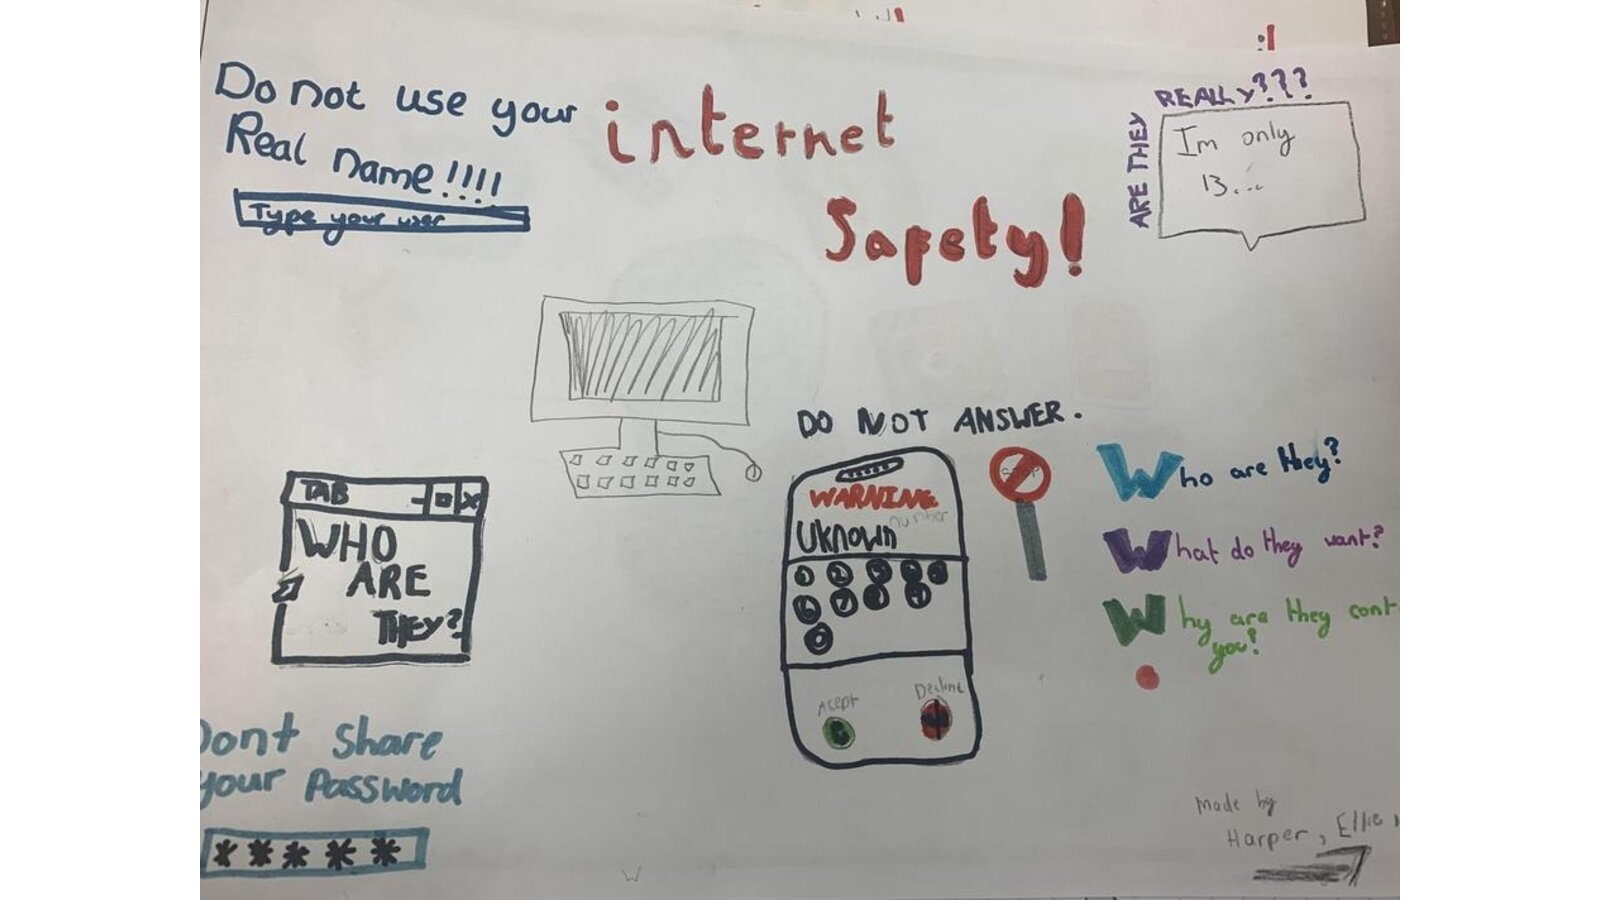 Do not use your
Real name!!!!
Type your user
internet
Safety!
ARE THEY
REALLY???
Im only
13...
TAB
WHO
ARE
THEY?
DO NOT ANSWER.
WARNING
Uknown
number
1 2 3 4 5
6 7 8 9
0
Acept
Decline
STOP
Who are they?
What do they want?
Why are they cont
you?
Dont share
your Password
*****
made by
Harper, Ellie
W